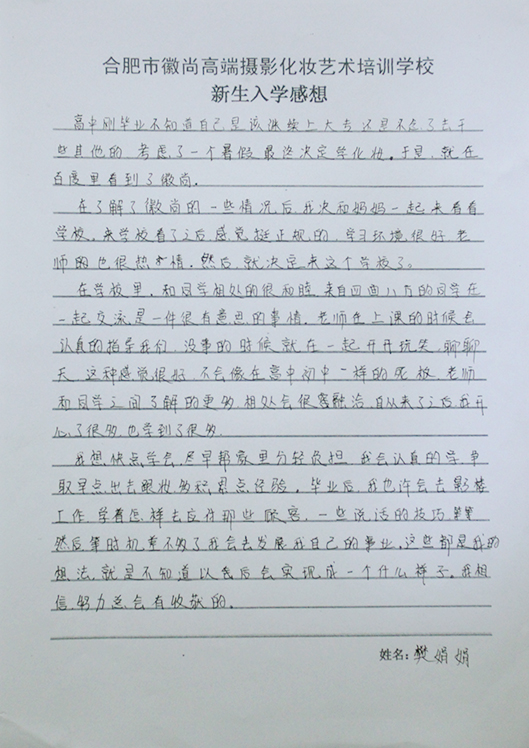 合肥市徽尚高端摄影化妆艺术培训学校
新生入学感想
高中刚毕业不知道自己是该继续上大专还是不念了去干
些其他的,考虑了一个暑假,最终决定学化妆。于是,就在
百度里看到了徽尚。
在了解了徽尚的一些情况后,我决和妈妈一起来看看
学校。来学校看了之后感觉挺正规的,学习环境很好,老
师的也很热情,然后,就决定来这个学校了。
在学校里,和同学相处的很和睦,来自四面八方的同学在
一起交流是一件很有意思的事情。老师在上课的时候会
认真的指导我们,没事的时候就在一起开开玩笑,聊聊
天,这种感觉很好,不会像在高中初中一样的死板,老师
和同学之间了解的更多,相处会很融洽,自从来了之后,我开
心了很多,也学到了很多。
我想快点学会,尽早帮家里分轻负担,我会认真的学,争
取早点出去跟妆多积累点经验。毕业后,我也许会去影楼
工作,学着怎样去应付那些顾客,一些说话的技巧,
然后等时机差不多了我会去发展我自己的事业。这些都是我的
想法,就是不知道以后会实现成一个什么样子。我相
信,努力总会有收获的。
姓名:樊娟娟